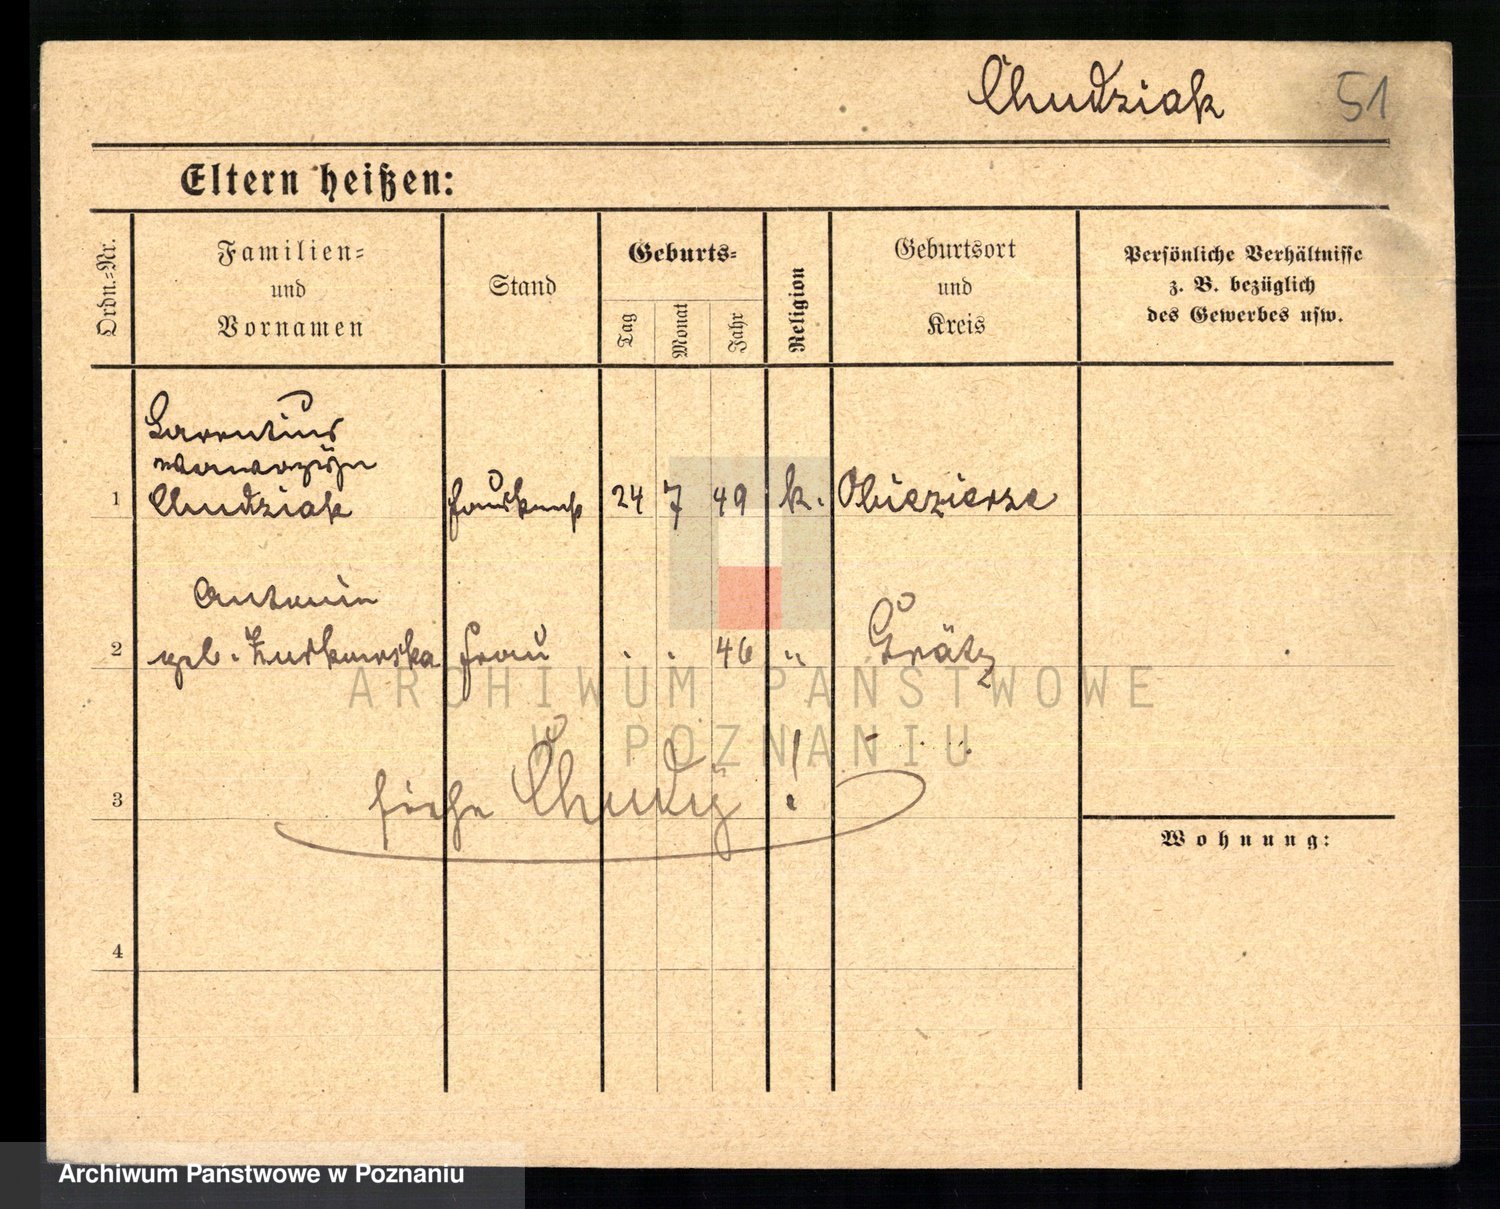 Chudziak 51
Eltern heißen:
Ordn.=Nr.
Familien=
und
Vornamen
Stand
Geburts=
Tag
Monat
Jahr
Religion
Geburtsort
und
Kreis
Persönliche Verhältnisse
z. B. bezüglich
des Gewerbes usw.
Laurentius
Wawrzyn
1 Chudziak 24 7 49 k. Obiezierze
Antonie
2 geb. Zurkowska Frau . . 46 " Grätz
3 siehe Chudy!
Wohnung:
4
ARCHIWUM PAŃSTWOWE
W POZNANIU
Archiwum Państwowe w Poznaniu